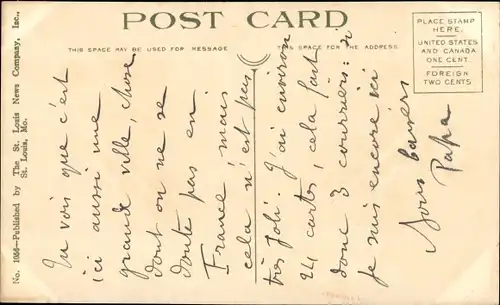 POST CARD
THIS SPACE MAY BE USED FOR MESSAGE
THIS SPACE FOR THE ADDRESS
PLACE STAMP
HERE,
UNITED STATES
AND CANADA
ONE CENT
FOREIGN
TWO CENTS
No. 1056—Published by The St. Louis News Company, Inc.,
St. Louis, Mo.
Tu vois que c'est
ici aussi une
grande ville, chose
dont on ne se
doute pas en
France, mais
cela n'est pas
très joli. J'ai environ
24 cartes, cela fait
donc 3 courriers : si
je suis encore ici
Bons baisers
Papa